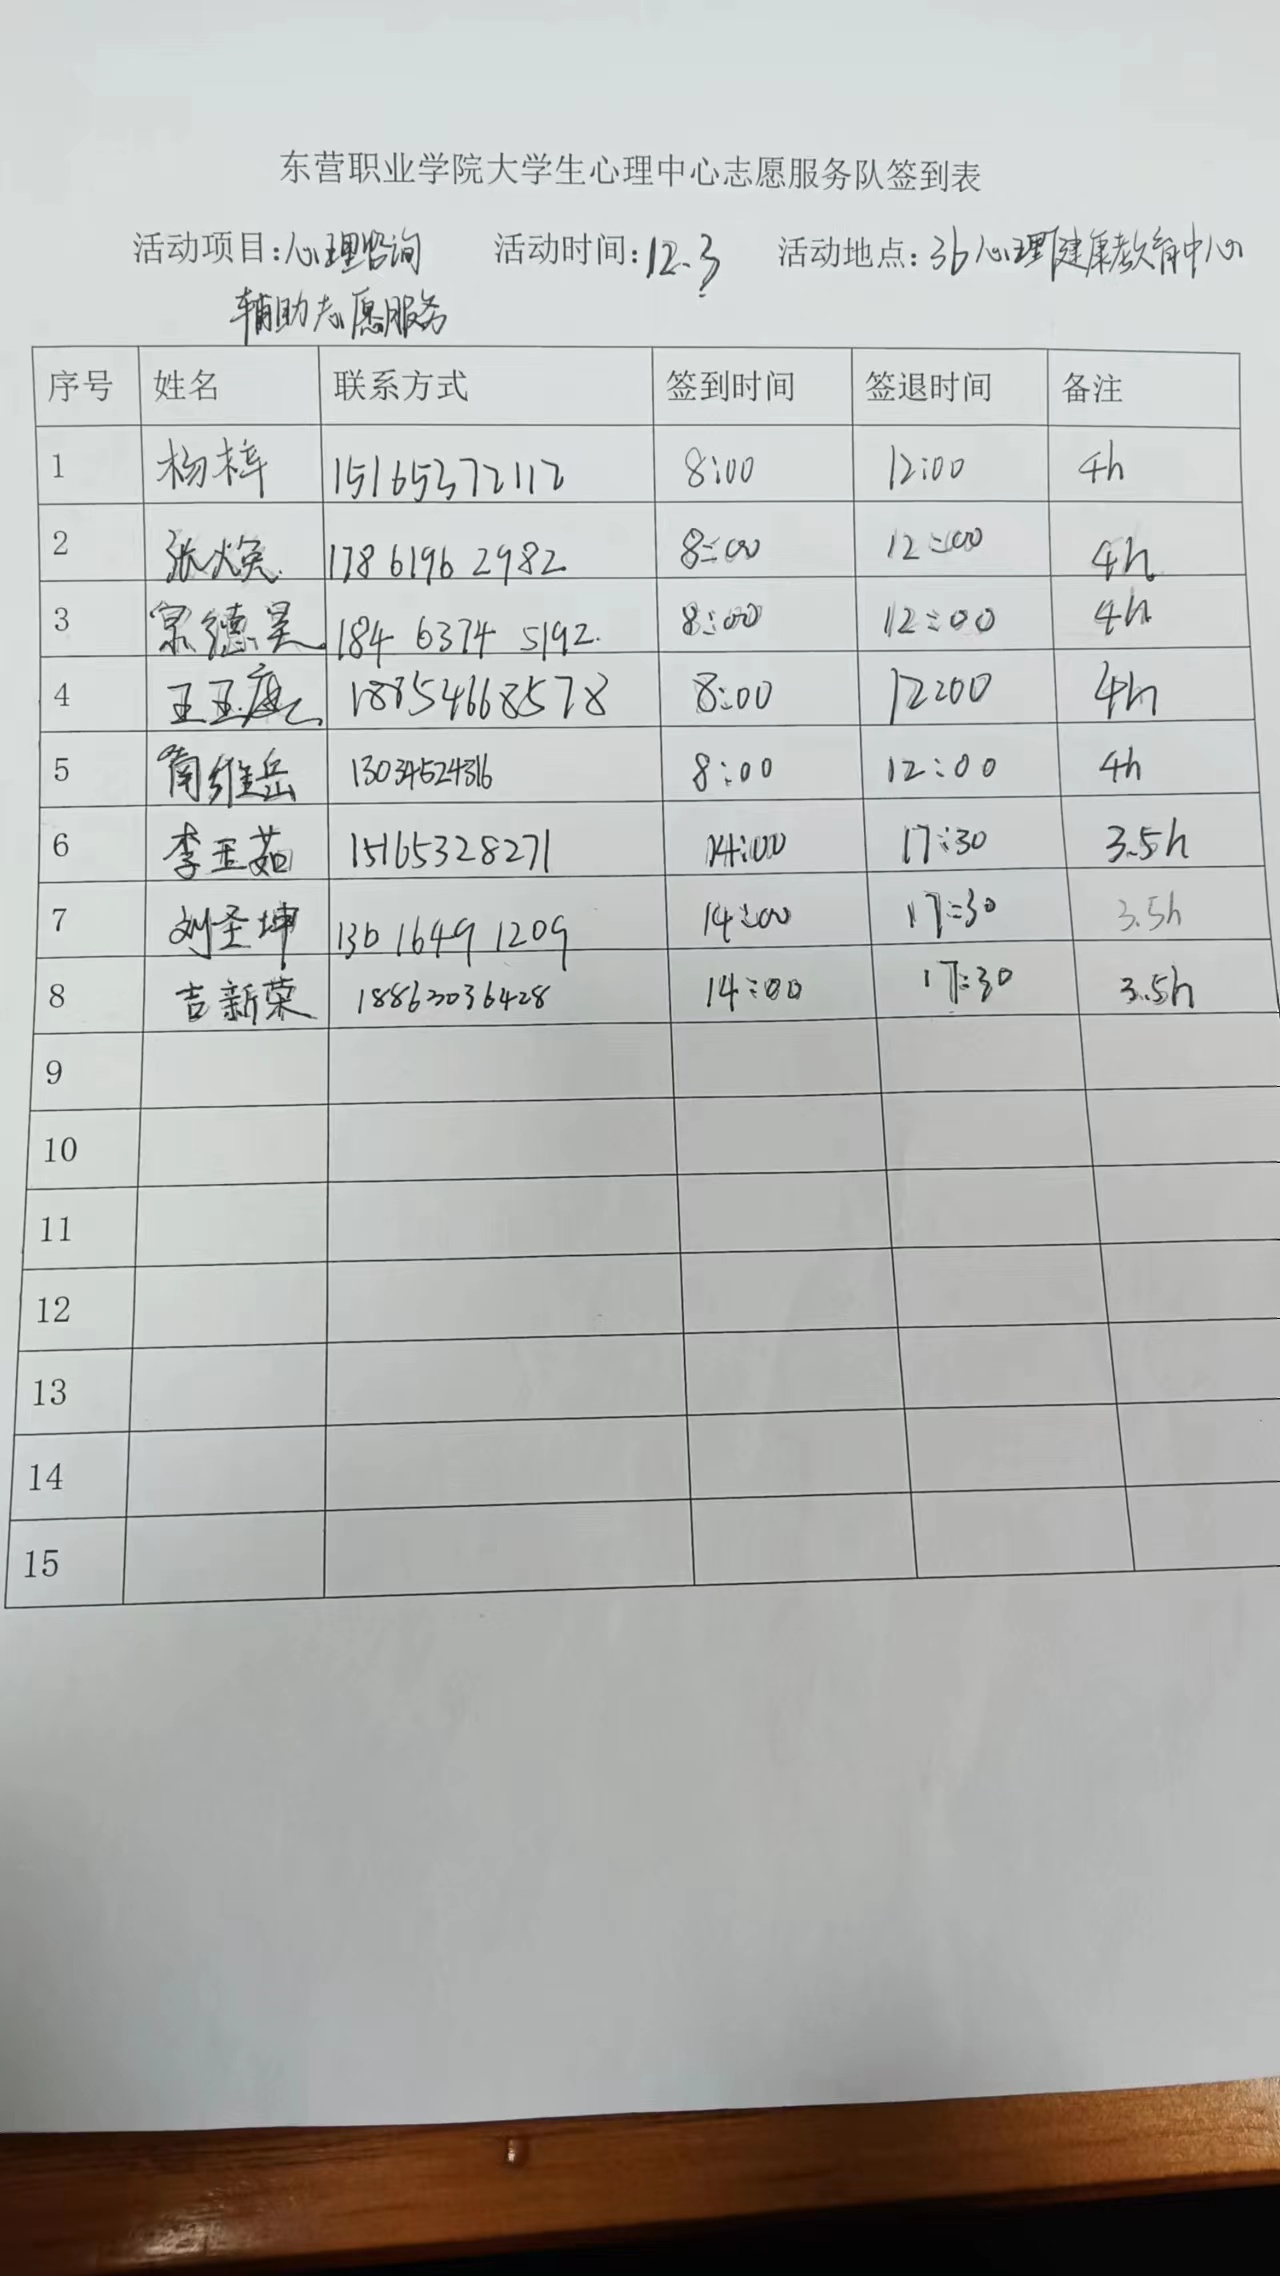 东营职业学院大学生心理中心志愿服务队签到表
活动项目:心理咨询 活动时间:12.3 活动地点:36心理健康教育中心
辅助志愿服务
序号 姓名 联系方式 签到时间 签退时间 备注
1 杨梓 15165372112 8:00 12:00 4h
2 张焕 178 6196 2982 8:00 12:00 4h
3 德昊 184 6374 5192 8:00 12:00 4h
4 王玉庭 18854668578 8:00 12:00 4h
5 维岳 13034524316 8:00 12:00 4h
6 李玉茹 15165328271 14:00 17:30 3.5h
7 刘圣坤 130 1649 1209 14:00 17:30 3.5h
8 吉新荣 18863036428 14:00 17:30 3.5h
9
10
11
12
13
14
15